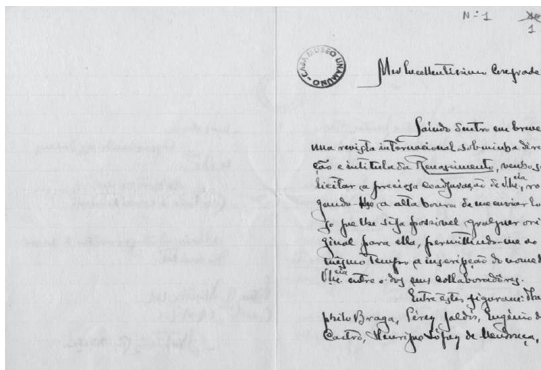 Nº 1
1
CASA MUSEO UNAMUNO
Meu Excellentissimo Confrade
Saindo dentro em breve
uma revista internacional sob minha direc
ção e intitulada Renascimento, venho so
licitar a preciosa coadjuvação de V. Ex.cia, ro
gando a alta honra de me enviar lo
go que lhe seja possivel qualquer ori
ginal para ella, permittindo-me ao
mesmo tempo a inscripção do nome d
V. Ex.cia entre o dos seus collaboradores.
Entre estes figuram: Theo
philo Braga, Pérez Galdós, Eugénio de
Castro, Henrique Lópes de Mendonça,